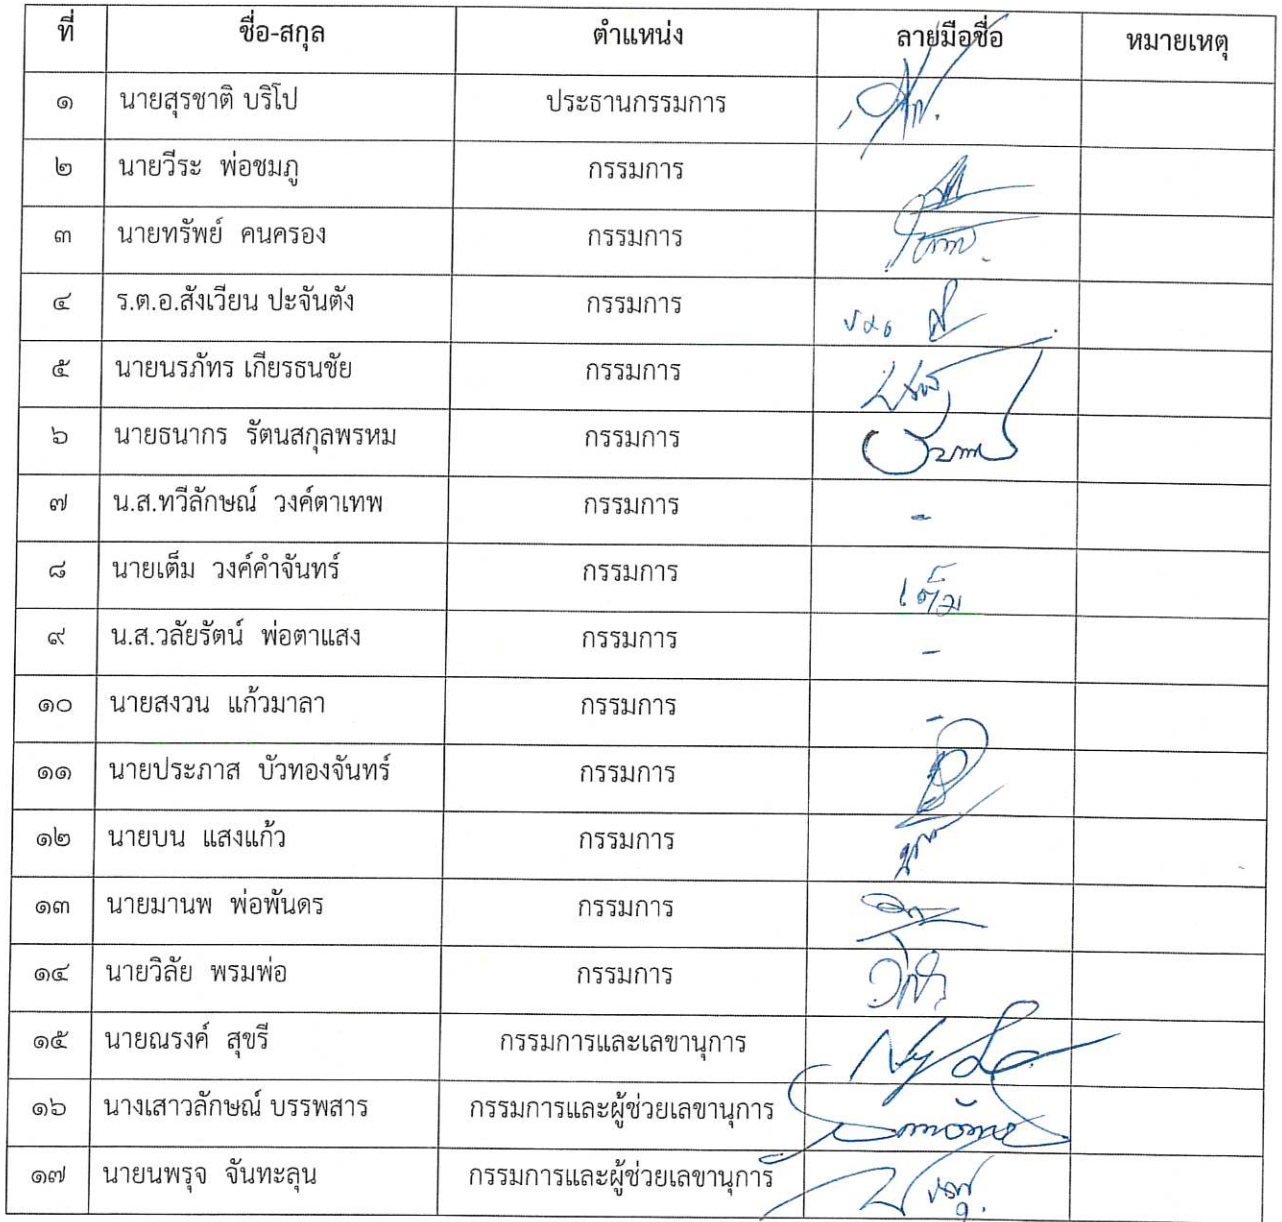 ที่ ชื่อ-สกุล ตำแหน่ง ลายมือชื่อ หมายเหตุ
๑ นายสุรชาติ บริโป ประธานกรรมการ
๒ นายวีระ พ่อชมภู กรรมการ
๓ นายทรัพย์ คนครอง กรรมการ
๔ ร.ต.อ.สังเวียน ปะจันตัง กรรมการ
๕ นายนรภัทร เกียรธนชัย กรรมการ
๖ นายธนากร รัตนสกุลพรหม กรรมการ
๗ น.ส.ทวีลักษณ์ วงค์ตาเทพ กรรมการ -
๘ นายเต็ม วงค์คำจันทร์ กรรมการ เต็ม
๙ น.ส.วลัยรัตน์ พ่อตาแสง กรรมการ -
๑๐ นายสงวน แก้วมาลา กรรมการ -
๑๑ นายประภาส บัวทองจันทร์ กรรมการ
๑๒ นายบน แสงแก้ว กรรมการ
๑๓ นายมานพ พ่อพันดร กรรมการ
๑๔ นายวิลัย พรมพ่อ กรรมการ
๑๕ นายณรงค์ สุขรี กรรมการและเลขานุการ
๑๖ นางเสาวลักษณ์ บรรพสาร กรรมการและผู้ช่วยเลขานุการ
๑๗ นายนพรุจ จันทะลุน กรรมการและผู้ช่วยเลขานุการ